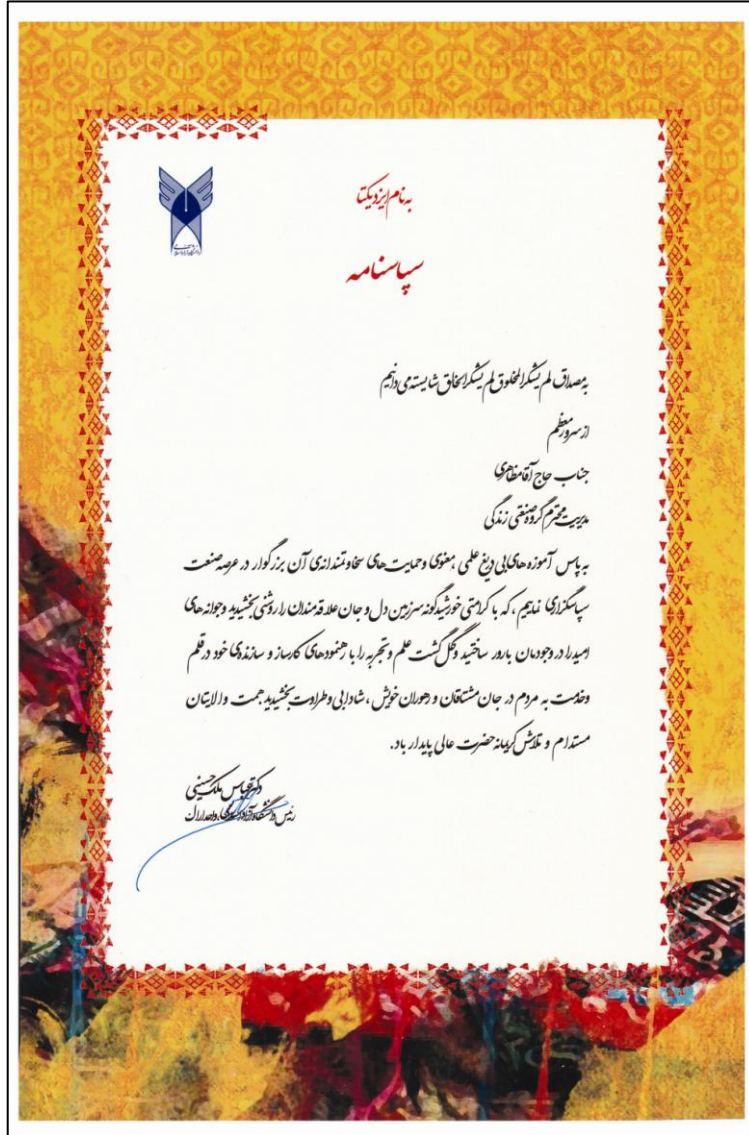 به نام ایزد یکتا
سپاسنامه
دانشگاه آزاد اسلامی
به مصداق لم یشکر المخلوق لم یشکر الخالق شایسته می دانیم
از سرور معظم
جناب حاج آقا مظاهری
مدیریت محترم گروه صنعتی زندگی
به پاس آموزه های بی دریغ علمی ، معنوی و حمایت های سخاوتمندانه ی آن بزرگوار در عرصه صنعت
سپاسگزاری نماییم ، که با کرامتی خورشیدگونه سرزمین دل و جان علاقه مندان را روشنی بخشیدید و جوانه های
امید را در وجودمان بارور ساختید و گل گشت علم و تجربه را با رهنمودهای کارساز و سازنده ی خود در قلم
وخدمت به مردم در جان مشتاقان و رهروان خویش ، شادابی و طراوت بخشیدید همت والایتان
مستدام و تلاش کریمانه حضرت عالی پایدار باد.
دکتر عباس ملک حسینی
رئیس دانشگاه آزاد اسلامی واحد اراک